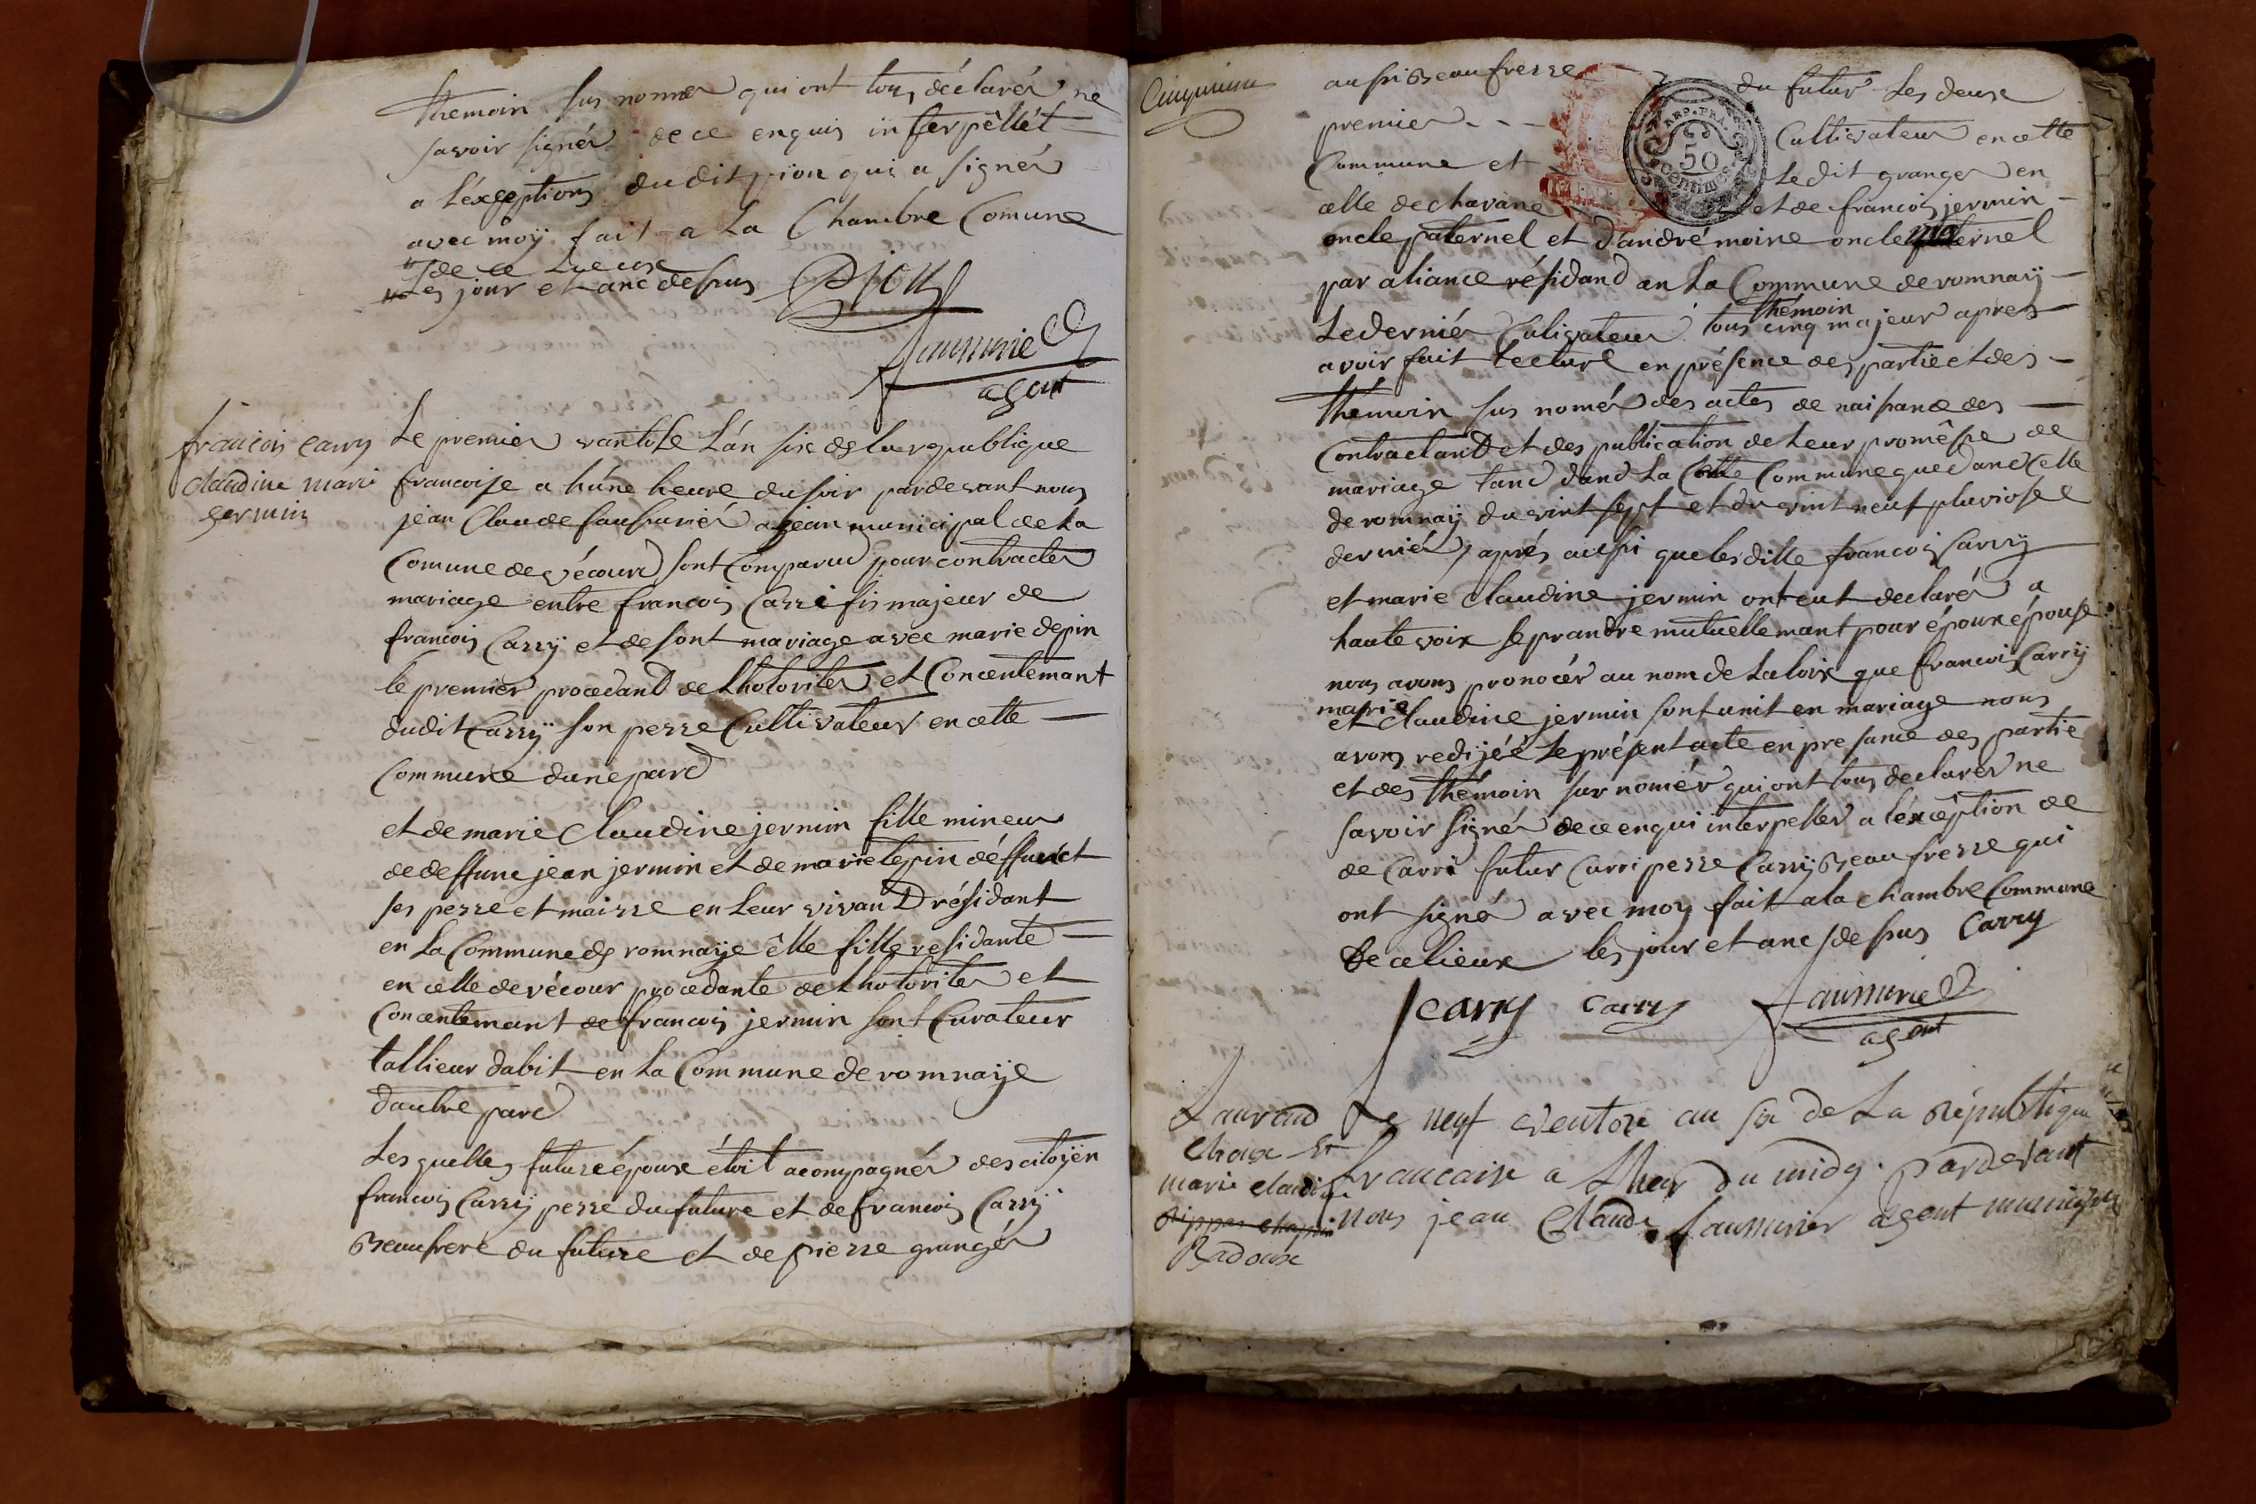 themoin sus nomer qui ont tous déclarér ne
savoir signér de ce enquis interpéllét
a l'éxception dudit pion qui a signér
avec moÿ fait a La Chambre Comune
de ce Lieux
Les jour et ané desus Pion
faussurié
agent
francois carry
claudine mari
germin
Le premier vantose L'án six de la republique
francoise a húne heure du soir par devant nous
jean Claude faussuriér ajean municipal de La
Comune de vécourd sont Comparud pour contracter
mariage entre francois Carri fis majeur de
francois Carrÿ et de sont mariage avec marie depin
le premier procedand de Lhotoriter et Concentemant
dudit Carrÿ son perre Cultivateur en cette
Commune d'une pard
et de marie Claudine jermin fille mineur
de deffunc jean jermin et de marie lepin déffunct
ses perre et mairre en Leur vivand résidant
en La Commune de romnaÿe élle fille residante
en cette de vécour procedante de Lhotoriter et
Concentemant de francois jermin sont Curateur
tallieur dabit en La Commune de romnaÿe
dautre pard
Lesquelles future épouse étoit acompagnér des citoÿen
francois Carrÿ perre du future et de francois Carrÿ
Beaufrere du future et de pierre grangér
Cinquieme
aussi Beaufrerre du futur Les deux
premier - - - Cultivateur en cette
Commune et Ledit granger en
celle de chavane et de francois jermin
oncle paternel et d'andré moine oncle maternel
par aliance résidand an La Commune de romnaÿ
Le derniér Culivateur tous cinq themoin majeur apres
avoir fait Lecture en présence des partie et des
themoin sus nomér des actes de naisance des
Contractand et des publication de Leur promésse de
mariage tand dand La Commune que dand Celle
de romnaÿ du vint sept et du vint neuf pluviose
derniér, aprés aussi que lesditte francois Carrÿ
et marie Claudine jermin ont eut declarér a
haute voix se prandre mutuellemant pour époux épouse
nous avons pronocér au nom de La loix que francois Carrÿ
et marie Claudine jermin sont unit en mariage nous
avons redijéé Le présent acte en presance des partie
et des themoin sus nomér qui ont tous declarer ne
savoir signér de ce enqui interpeller a l'éxception de
de Carri futur Carri perre Carrÿ Beaufrerre qui
ont signé avec moy fait a la chambre Commune
de ce lieux les jour et anc desus Carry
Jcarry carry faussurié
agent
ARP. PRA.
50
CENTIMES
Lauraud
Chaux Et
marie claudine
Badoux
Le neuf ventose an six de La République
francaise a Lheur du midy. pardevant
nous jean Claude faussurier agent municipal